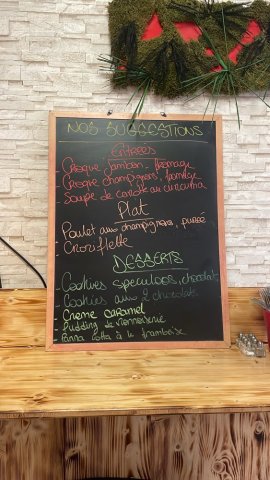 NOS SUGGESTIONS
Entrées
- Croque Jambon-fromage
- Croque champignons, fromage
- Soupe de carotte au curcuma
Plat
- Poulet aux champignons, purée
- Croziflette
DESSERTS
- Cookies speculoos, chocolat
- Cookies aux 2 chocolats
- Crème caramel
- Pudding de viennoiserie
- Panna cotta à la framboise